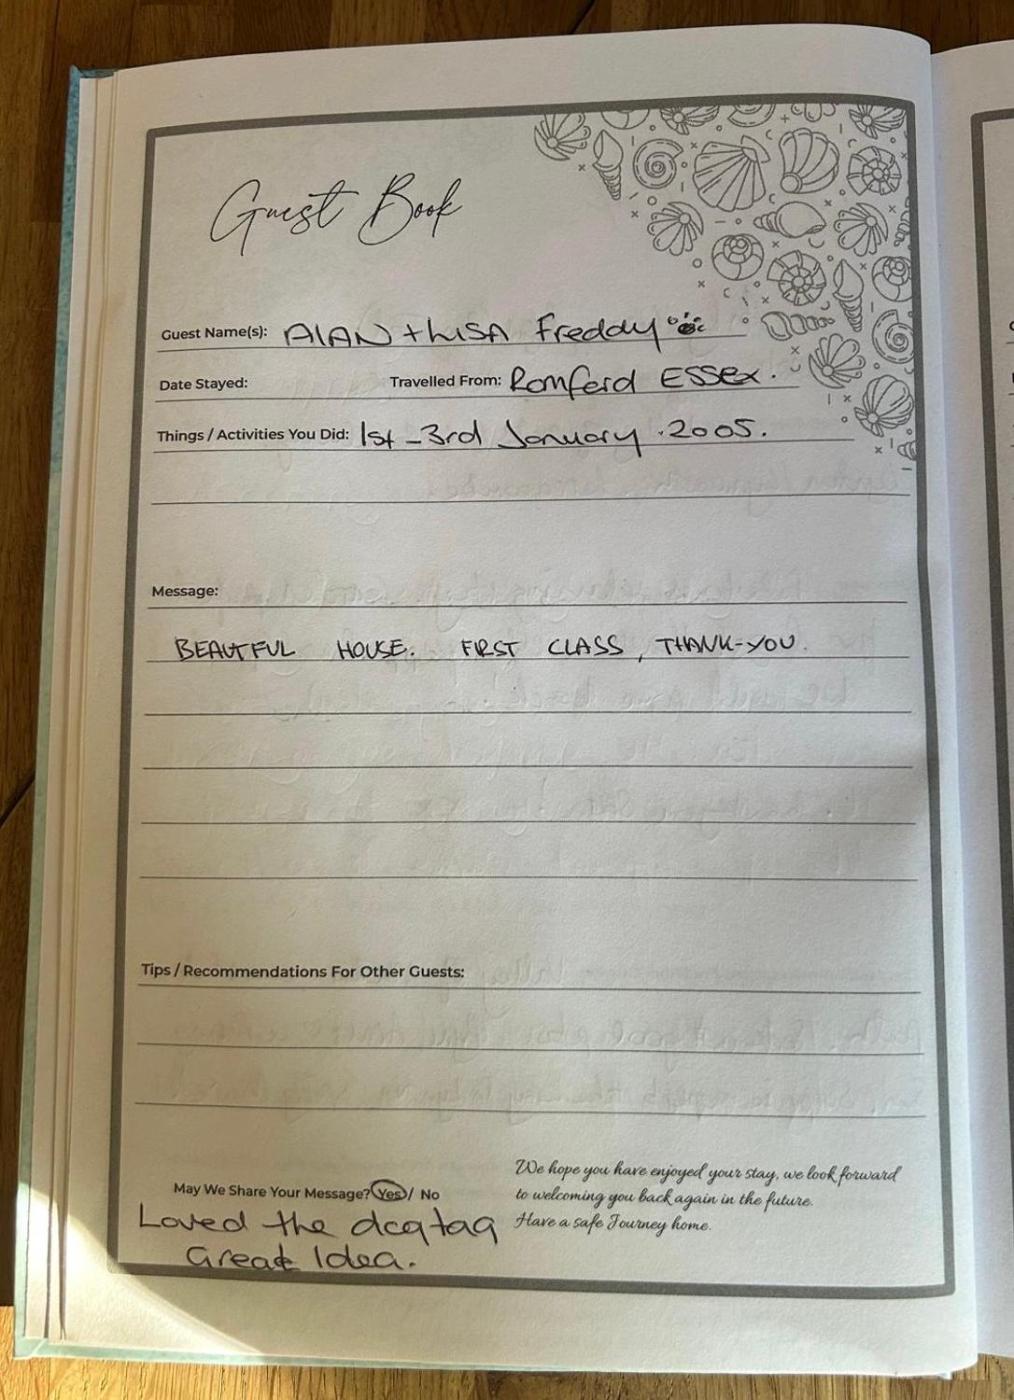 Guest Book
Guest Name(s): AlAN + LISA Freddy
Date Stayed: Travelled From: Romford ESSex.
Things / Activities You Did: 1st - 3rd January . 2005.
Message:
BEAUTFUL HOUSE. FIRST CLASS, THANK-YOU.
Tips / Recommendations For Other Guests:
We hope you have enjoyed your stay, we look forward
to welcoming you back again in the future.
Have a safe Journey home.
May We Share Your Message? Yes / No
Loved the dog tag
Great Idea.